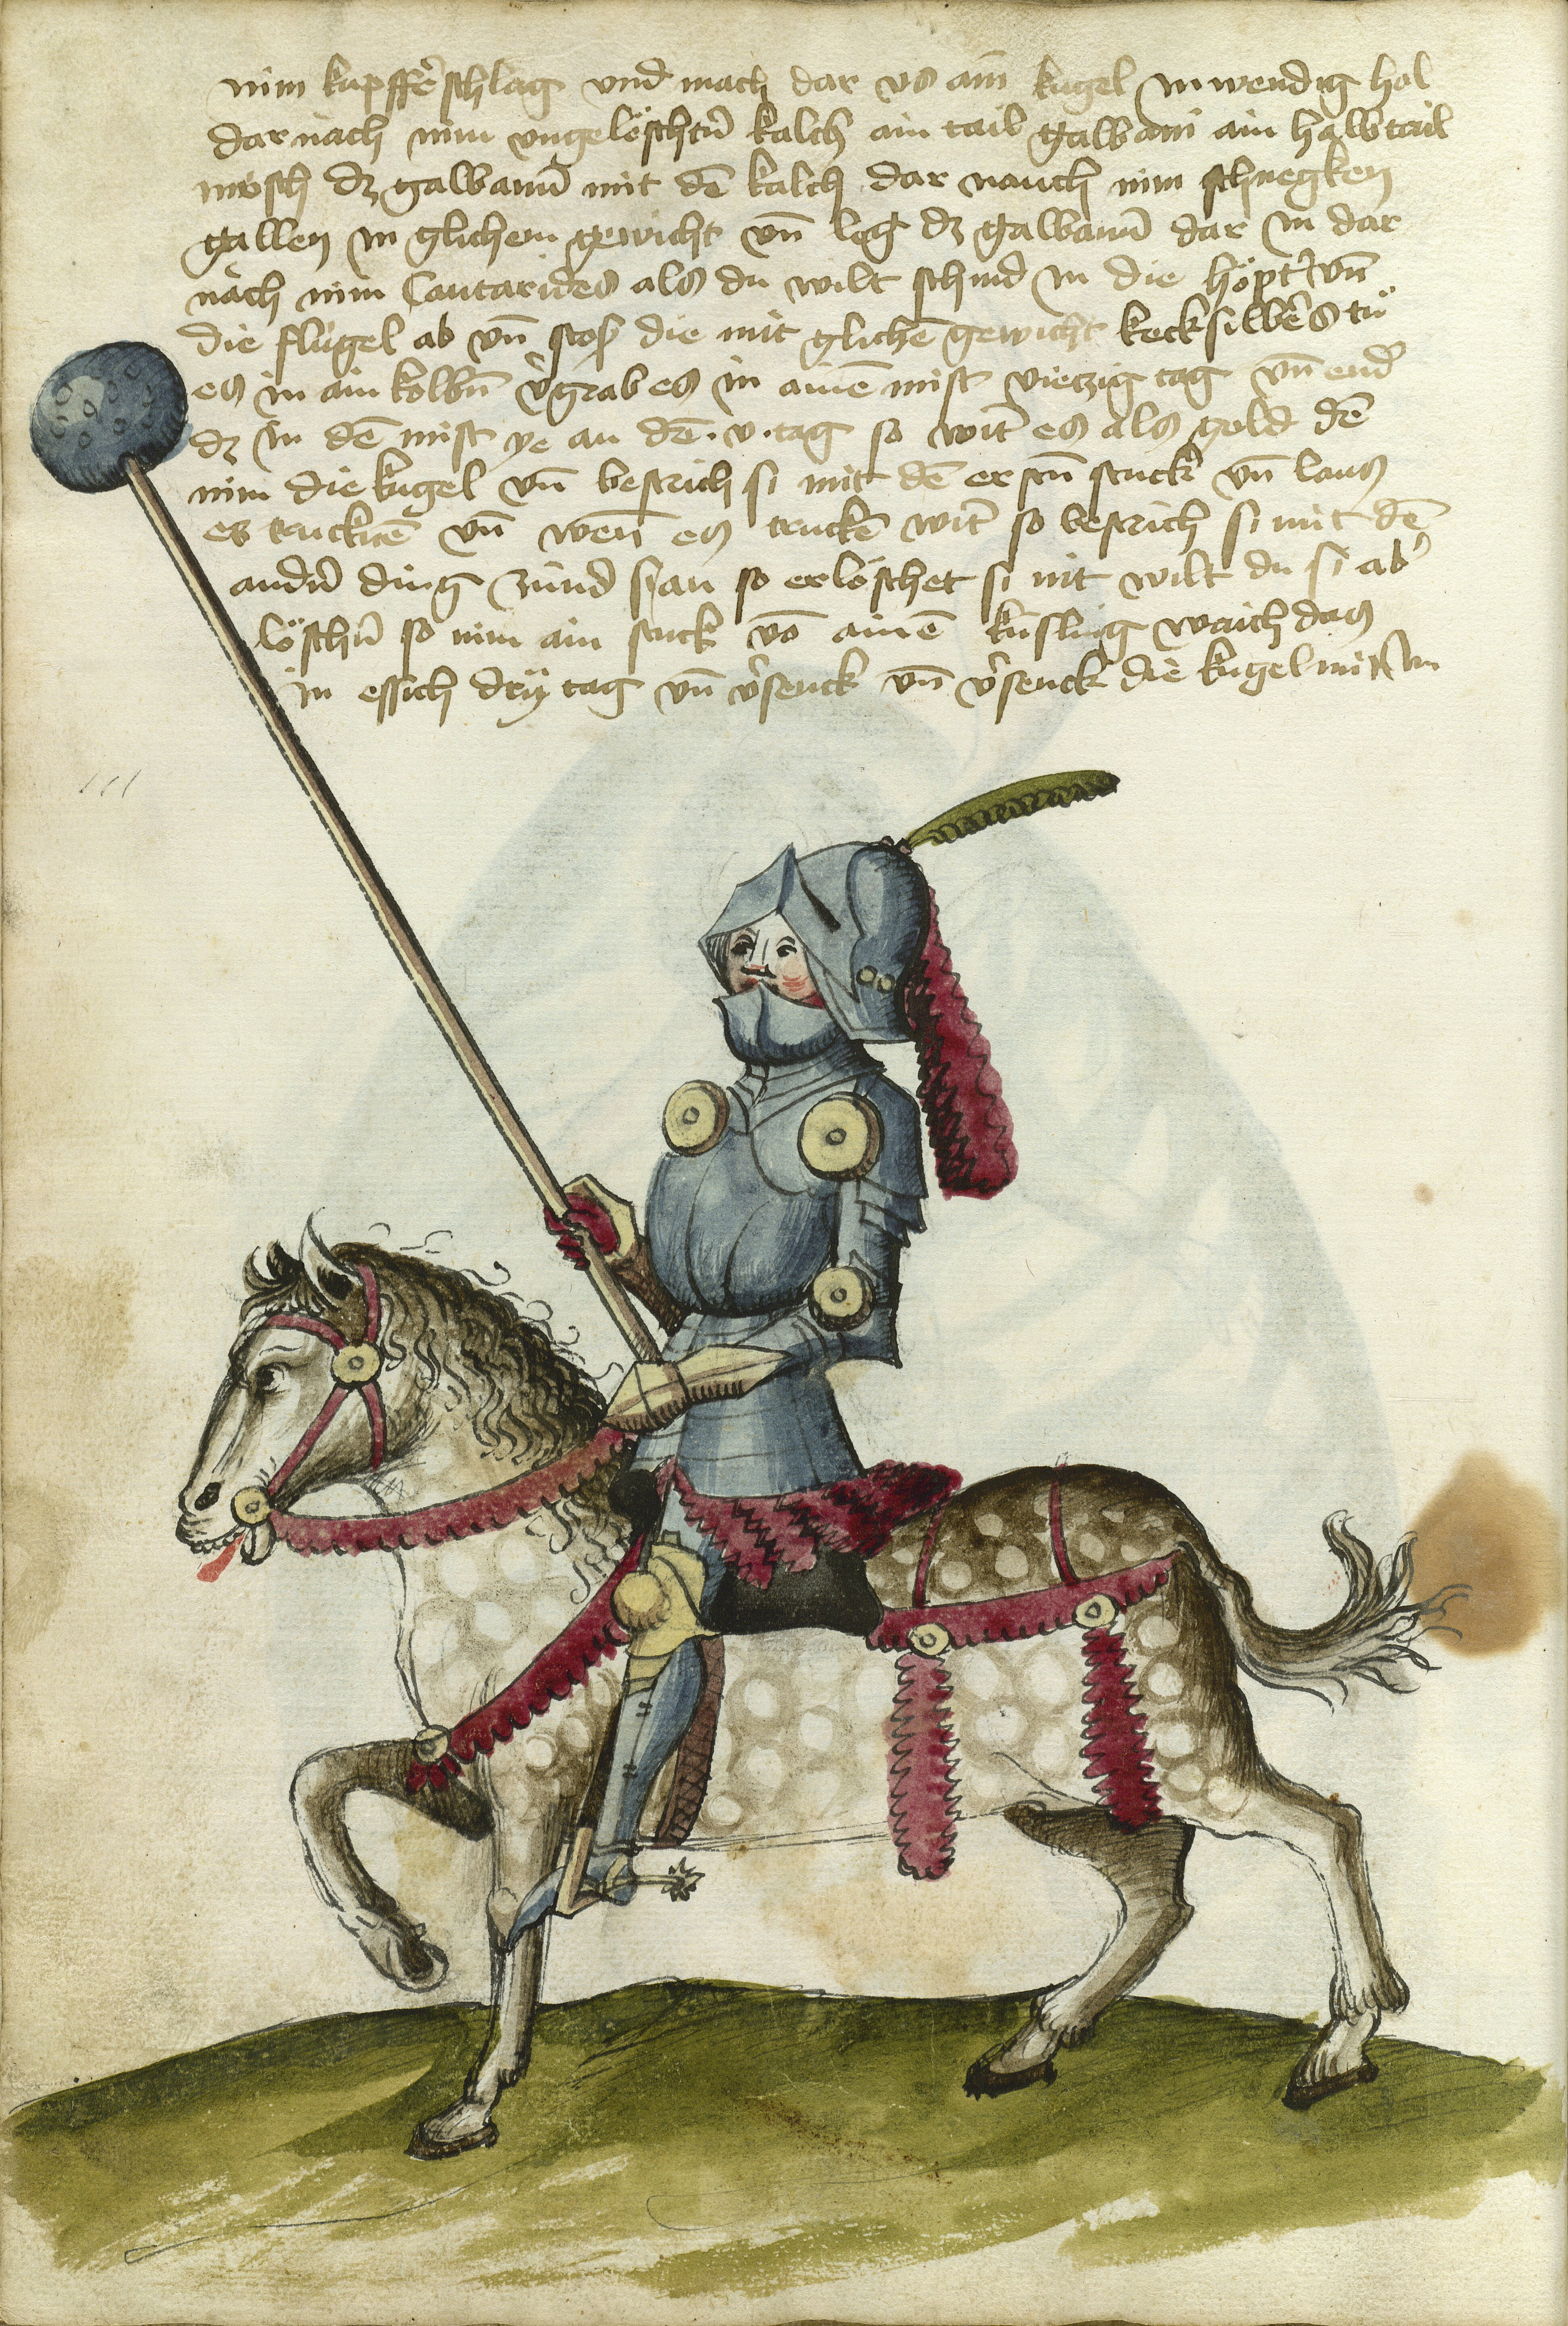 nim kupffẽschlag vnd mach dar vs ain kugel inwendig hol
dar nach nim vngelöschtñ kalch ain tail galbani ain halbtail
misch dz galbanũ mit dẽ kalch dar nauch nim schnegken
gallen in glichem gewicht vñ leg dz galbanũ dar in dar
nach nim Cantarides als du wilt schnid in die höpt vñ
die flügel ab vñ stos die mit glichẽ gewicht kecksilbers tů
es in ain kolbñ v̾grab es in ainẽ mist viertzig tag vñ end
dz in dẽ mist ye an dẽ .v. tag so wirt es als gold dẽ
nim die kugel vñ bestrich si mit dẽ erstñ stuck vñ laus
es trucknẽ vñ wen es truckẽ wirt so bestrich si mit dẽ
andñ ding zünd si an so erlöschet si nit wilt du si ab
löschñ so nim ain stuck võ ainẽ kisling waich das
in essich dry tag vñ v̾senck vñ v̾senck die kugel mit in